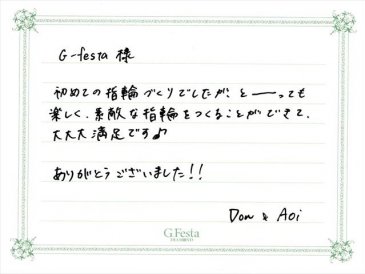 G-festa 様
初めての指輪づくりでしたが、と――っても
楽しく、素敵な指輪をつくることができて、
大大大満足です♪
ありがとうございました!!
Dom & Aoi
G.Festa